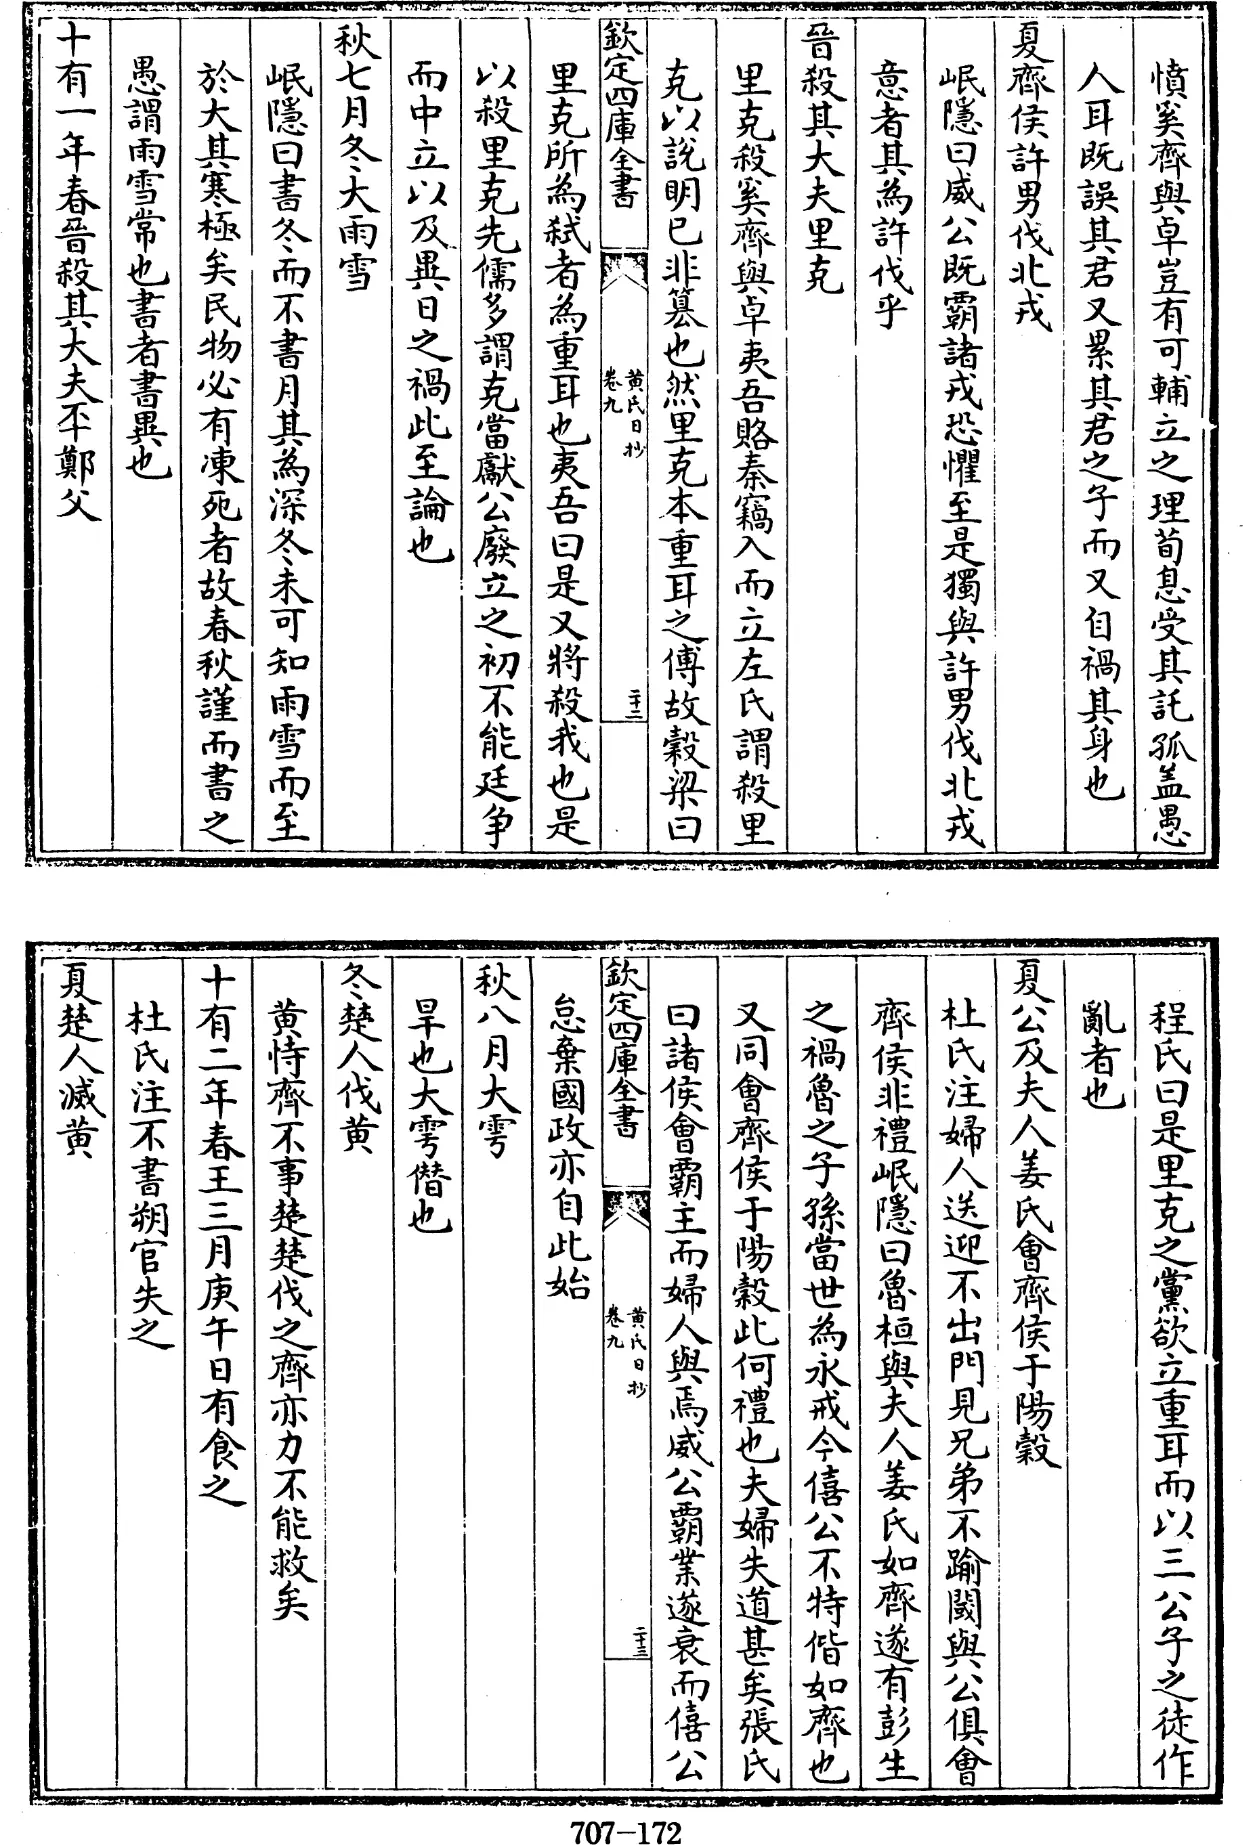 憤奚齊與卓豈有可輔立之理荀息受其託孤盖愚
人耳既誤其君又累其君之子而又自禍其身也
夏齊侯許男伐北戎
岷隱曰威公既霸諸戎恐懼至是獨與許男伐北戎
意者其為許伐乎
晉殺其大夫里克
里克殺奚齊與卓夷吾賂秦竊入而立左氏謂殺里
克以說明已非簒也然里克本重耳之傅故穀梁曰
欽定四庫全書
黄氏日抄
卷九
二十二
里克所為弑者為重耳也夷吾曰是又將殺我也是
以殺里克先儒多謂克當獻公廢立之初不能廷争
而中立以及異日之禍此至論也
秋七月冬大雨雪
岷隱曰書冬而不書月其為深冬未可知雨雪而至
於大其寒極矣民物必有凍死者故春秋謹而書之
愚謂雨雪常也書者書異也
十有一年春晉殺其大夫丕鄭父
程氏曰是里克之黨欲立重耳而以三公子之徒作
亂者也
夏公及夫人姜氏會齊侯于陽穀
杜氏注婦人送迎不出門見兄弟不踰閾與公俱會
齊侯非禮岷隱曰魯桓與夫人姜氏如齊遂有彭生
之禍魯之子孫當世為永戒今僖公不特偕如齊也
又同會齊侯于陽穀此何禮也夫婦失道甚矣張氏
曰諸侯會霸主而婦人與焉威公霸業遂衰而僖公
欽定四庫全書
黄氏日抄
卷九
二十三
怠棄國政亦自此始
秋八月大雩
旱也大雩僭也
冬楚人伐黄
黄恃齊不事楚楚伐之齊亦力不能救矣
十有二年春王三月庚午日有食之
杜氏注不書朔官失之
夏楚人滅黄
707-172